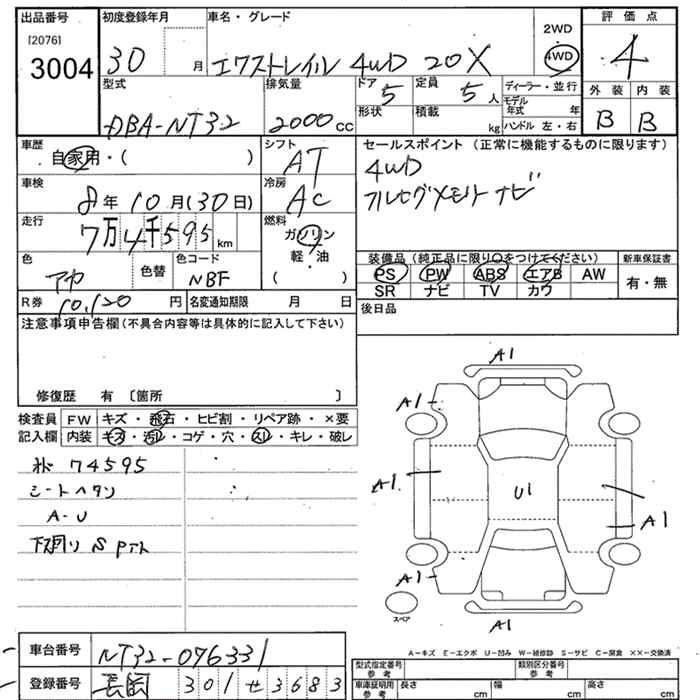 出品番号
[2076]
3004
初度登録年月
30 月
車名・グレード
エクストレイル 4WD 20X
2WD
4WD
評価点
4
外装 内装
B B
型式
DBA-NT32
排気量
2000 CC
ドア
5
定員
5 人
形状
積載
kg
ディーラー・並行
モデル年式 年
ハンドル 左・右
車歴
自家用・( )
シフト
AT
車検
8年 10月(30日)
冷房
AC
走行
7万4千595 km
燃料
ガソリン
軽・油
( )
色
アカ
色替
色コード
NBF
R券 10,120 円
名変通知期限 月 日
セールスポイント(正常に機能するものに限ります)
4WD
フルセグメモリナビ
装備品(純正品に限り○をつけてください)
PS PW ABS エアB AW
SR ナビ TV カワ
新車保証書
有・無
後日品
注意事項申告欄(不具合内容等は具体的に記入して下さい)
修復歴 有 〔箇所 〕
検査員
記入欄
FW キズ・飛石・ヒビ割・リペア跡・×要
内装 キズ・汚レ・コゲ・穴・スレ・キレ・破レ
74595
シートヘタリ
A-U
下廻り S
A1
A1
A1
U1
A1
A1
A1
スペア
A-キズ E-エクボ U-凹み W-補修跡 S-サビ C-腐食 ××-交換済
車台番号 NT32-076331
登録番号 301 せ 3683
型式指定番号
参考
類別区分番号
参考
車庫証明用
参考
長さ cm
幅 cm
高さ cm